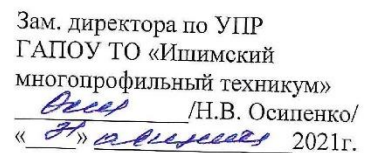 Зам. директора по УПР
ГАПОУ ТО «Ишимский
многопрофильный техникум»
/Н.В. Осипенко/
« » 2021г.